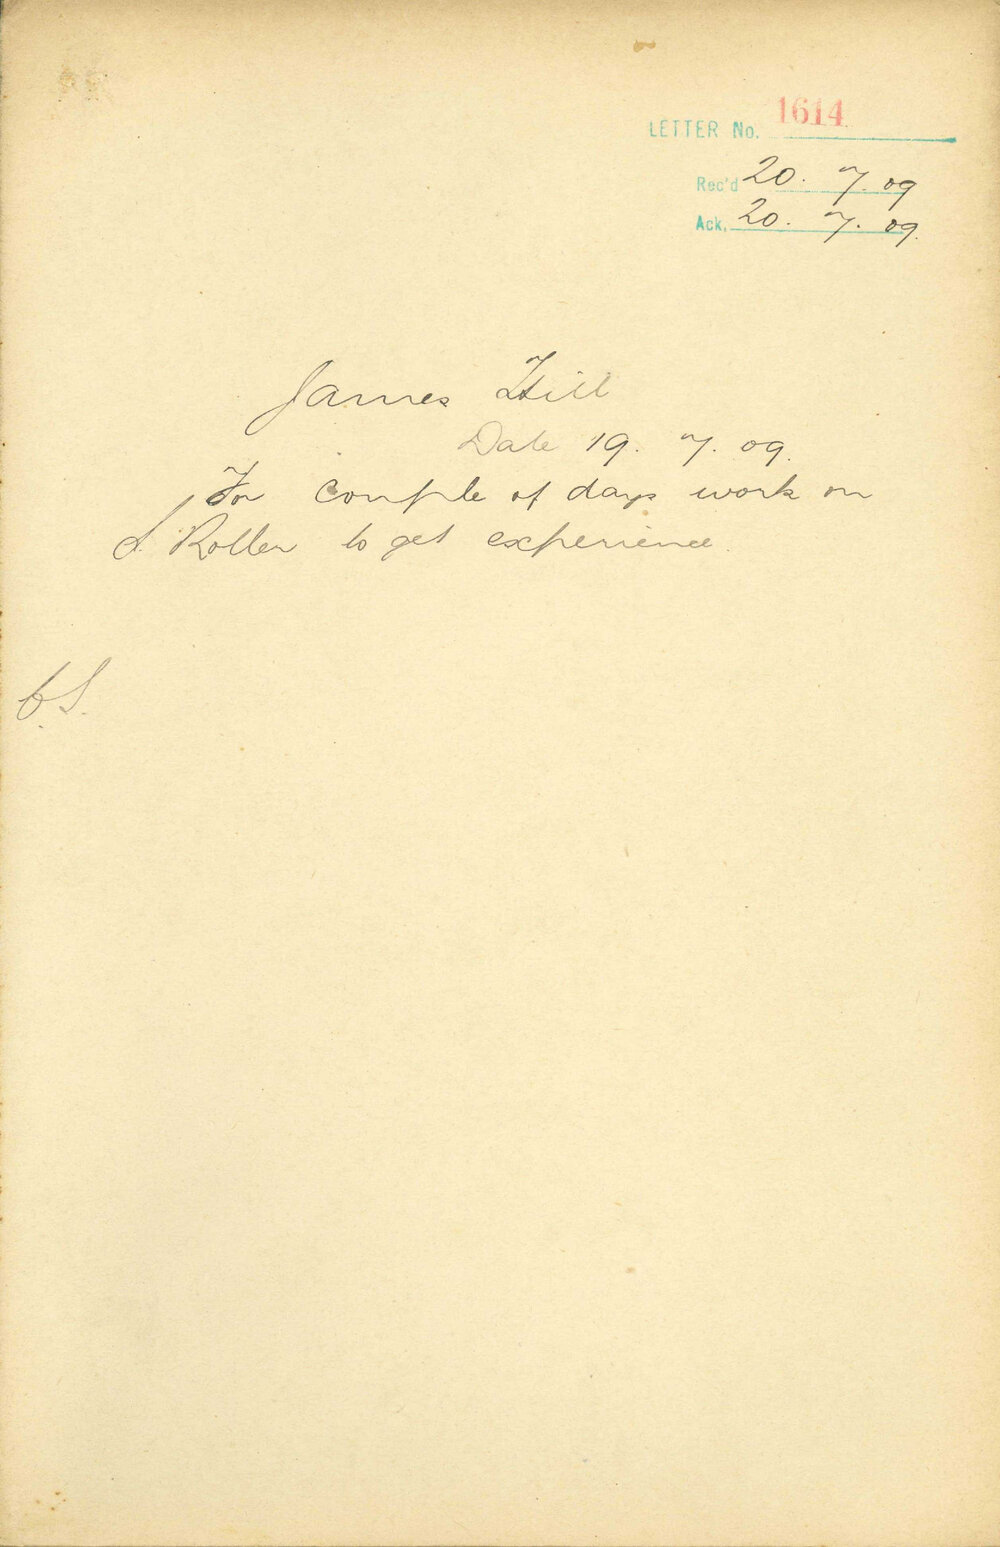 LETTER No. 1614
Rec'd 20. 7. 09
Ack. 20. 7. 09.
James Hill
Date 19. 7. 09.
For couple of days work on
S. Roller to get experience.